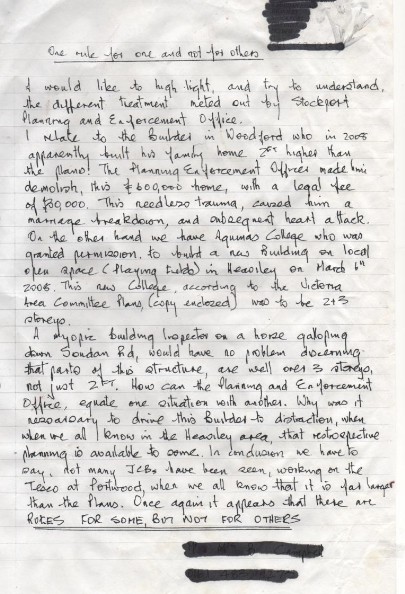 One rule for one and not for others
I would like to high light, and try to understand,
the different "treatment" meted out by Stockport
Planning and Enforcement Office.
I relate to the Builder in Woodford who in 2008
apparently built his family home 2FT higher than
the plans! The Planning Enforcement Officer made him
demolish, this £600,000 home, with a legal fee
of £30,000. This needless trauma, caused him a
marriage breakdown, and subsequent heart attack.
On the other hand we have Aquinas College who was
granted permission. to build a new Building on local
open space (Playing fields) in Heaviley on March 6th
2008. This new College, according to the Victoria
Area Committee Plans, (copy enclosed) was to be 2+3
storeys.
A myopic Building Inspector on a horse galloping
down Soudan Rd, would have no problem discerning
that parts of this structure, are well over 3 storeys,
not just 2FT. How can the Planning and Enforcement
Office, equate one situation with another. Why was it
necessary to drive this Builder to distraction, when
when we all know in the Heaviley area, that retrospective
planning is available to some. In conclusion we have to
say, not many JCBs have been seen, working on the
Tesco at Portwood, when we all know that it is far larger
than the Plans. Once again it appears that there are
RULES FOR SOME, BUT NOT FOR OTHERS